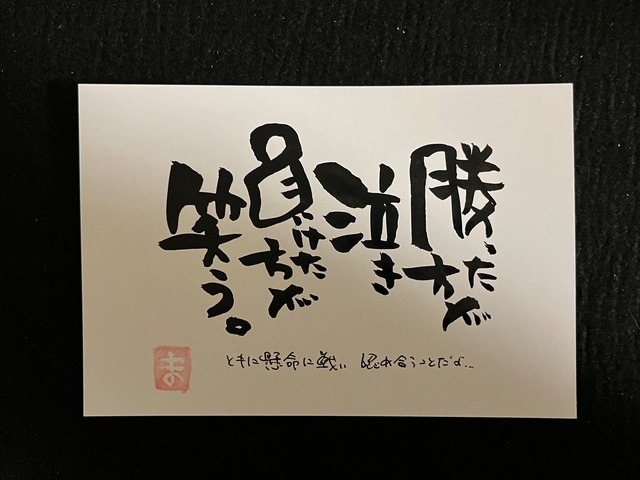 勝った方が
泣き
負けた方が
笑う。
ともに懸命に戦い 認め合うことだよ…
ま